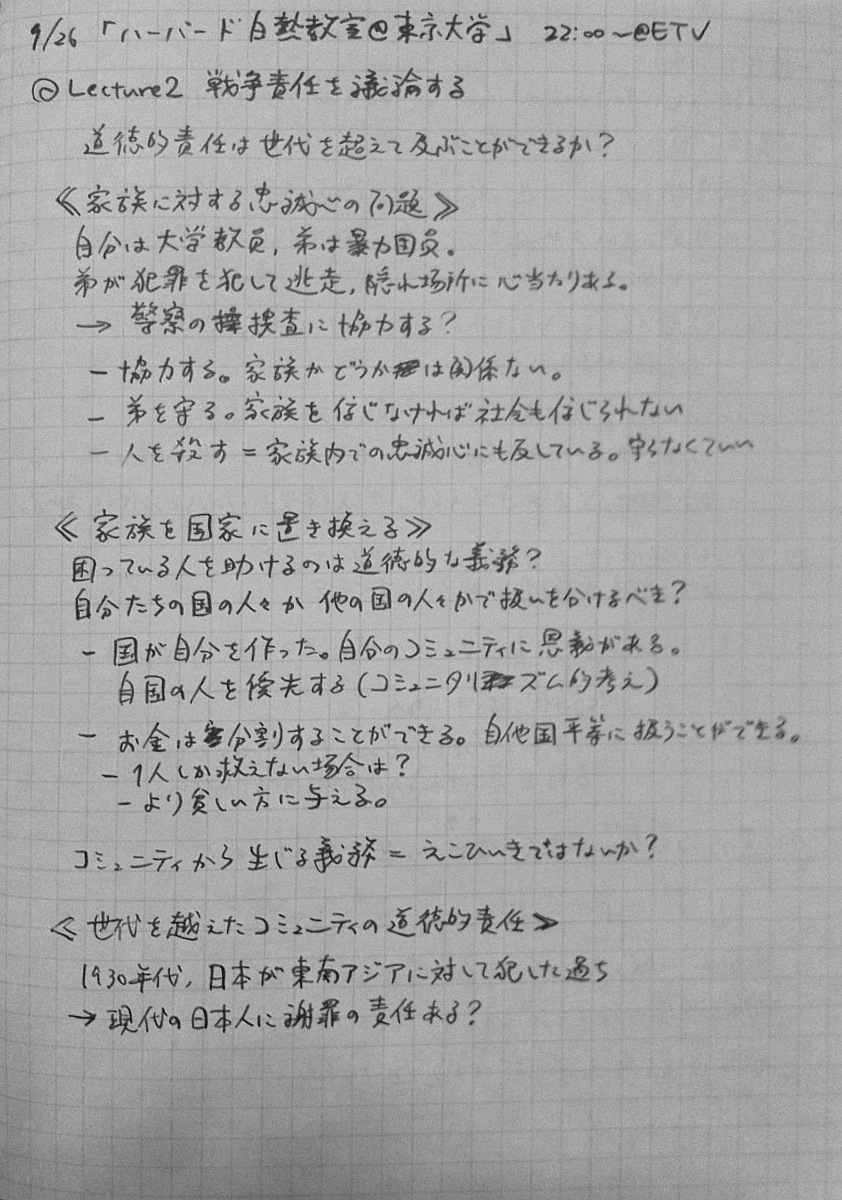 9/26 「ハーバード白熱教室@東京大学」 22:00〜@ETV
◎Lecture2 戦争責任を議論する
道徳的責任は世代を超えて及ぶことができるか?
≪家族に対する忠誠心の問題≫
自分は大学教員, 弟は暴力団員。
弟が犯罪を犯して逃走, 隠れ場所に心当たりある。
→ 警察の捜査に協力する?
- 協力する。家族かどうかは関係ない。
- 弟を守る。家族を信じなければ社会も信じられない
- 人を殺す=家族内での忠誠心にも反している。守らなくていい
≪家族を国家に置き換える≫
困っている人を助けるのは道徳的な義務?
自分たちの国の人々か 他の国の人々かで扱いを分けるべき?
- 国が自分を作った。自分のコミュニティに恩義がある。
自国の人を優先する(コミュニタリズム的考え)
- お金は分割することができる。自他国平等に扱うことができる。
- 1人しか救えない場合は?
- より貧しい方に与える。
コミュニティから生じる義務 = えこひいきではないか?
≪世代を越えたコミュニティの道徳的責任≫
1930年代, 日本が東南アジアに対して犯した過ち
→ 現代の日本人に謝罪の責任ある?